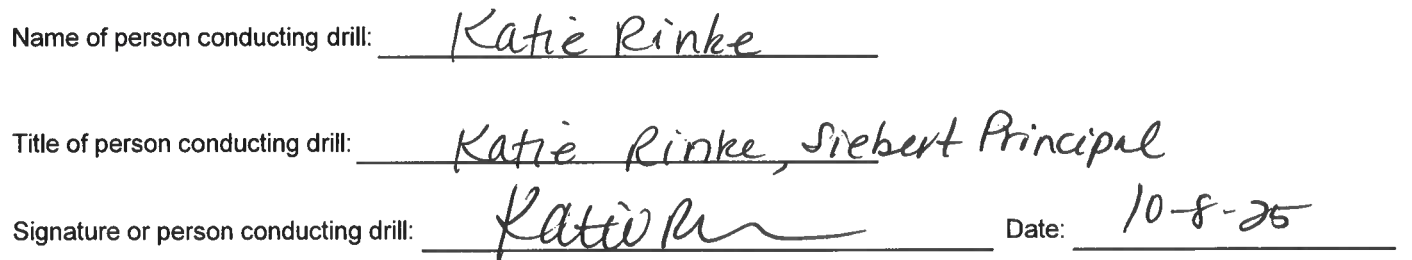 Name of person conducting drill: Katie Rinke
Title of person conducting drill: Katie Rinke, Siebert Principal
Signature or person conducting drill: Katie R Date: 10-8-25